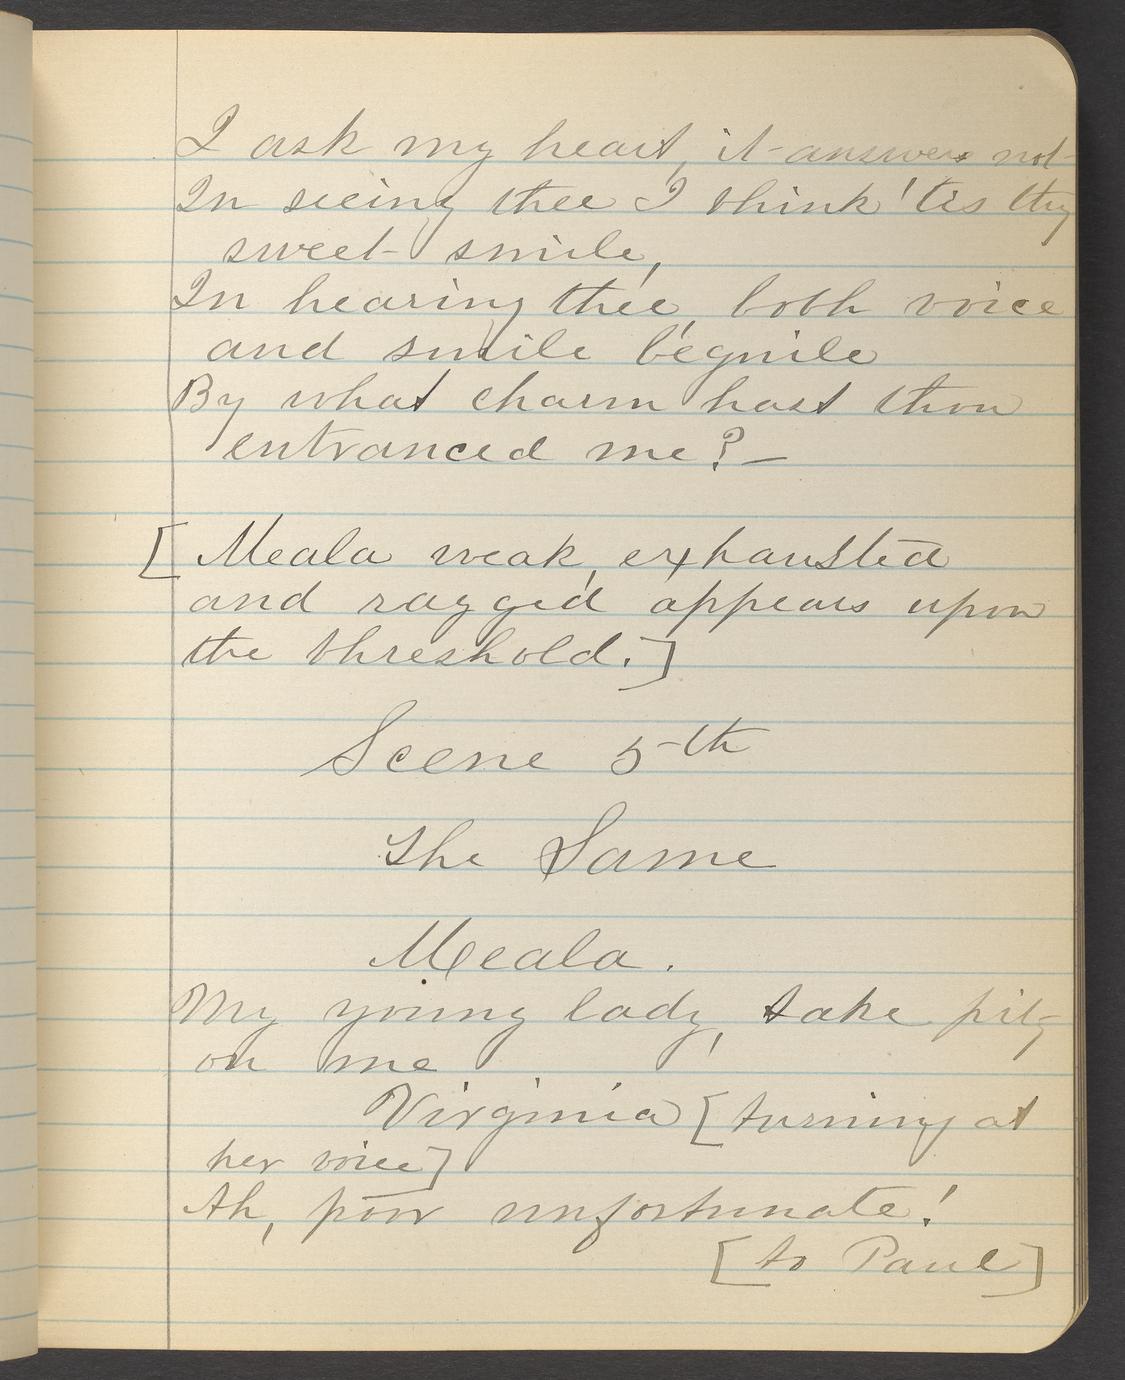 I ask my heart, it answers not
In seeing thee I think 'tis thy
sweet smile,
In hearing thee, both voice
and smile beguile
By what charm hast thou
entranced me? —
[Meala weak, exhausted
and ragged appears upon
the threshold.]
Scene 5th
The Same
Meala.
My young lady, take pity
on me
Virginia [turning at
her voice]
Ah, poor unfortunate!
[to Paul]